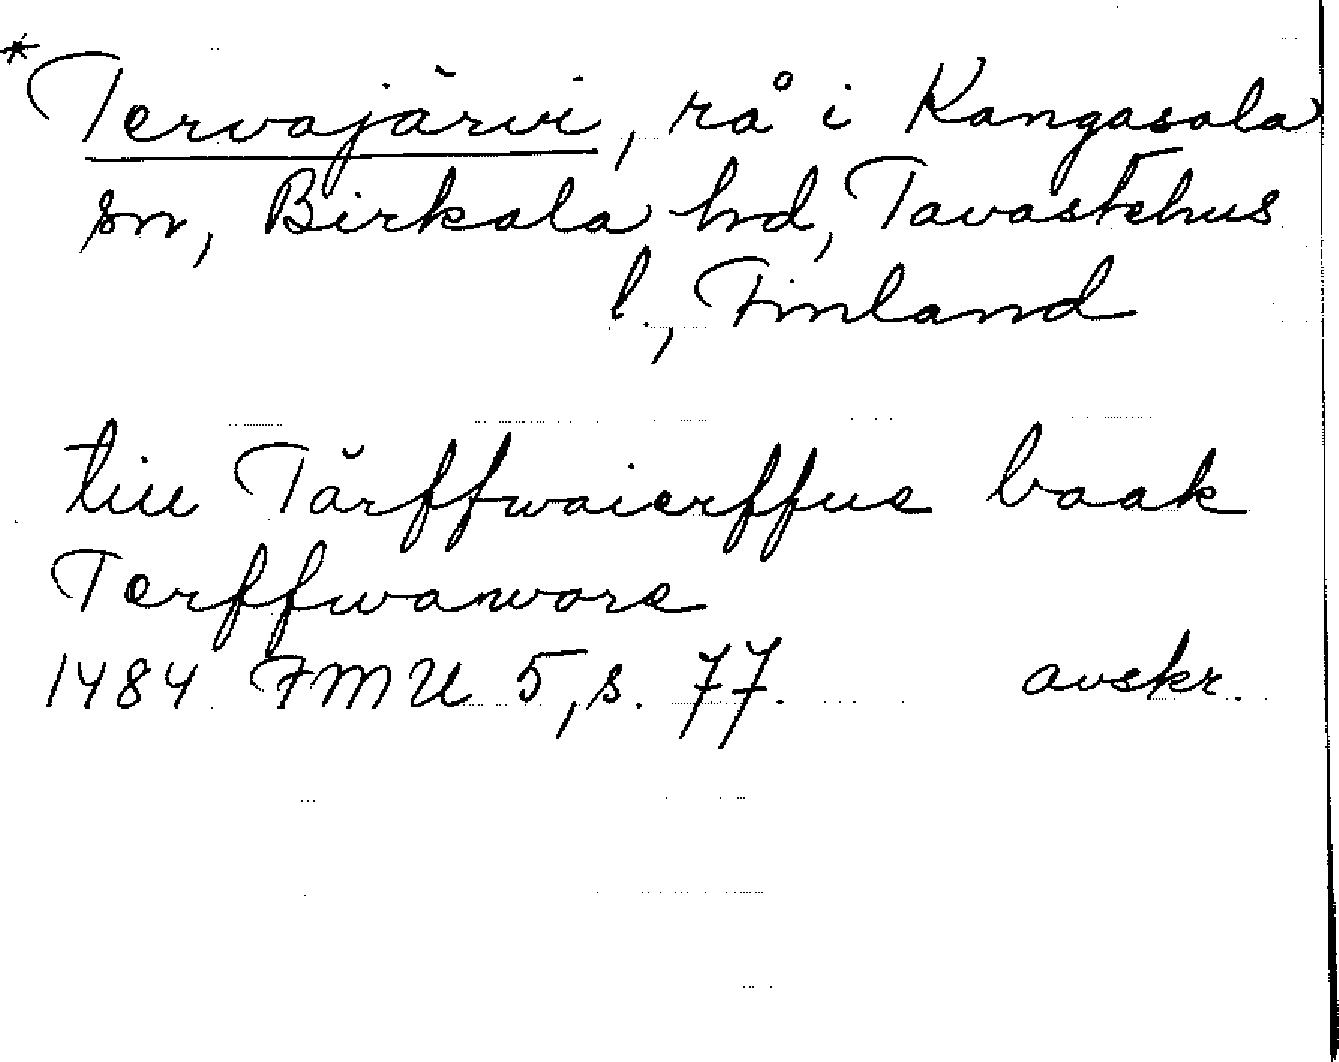 *Tervajärvi, rå i Kangasala
sn, Birkala hd, Tavastehus
l., Finland
till Tärffwaierffue baak
Terffwawore
1484 FMU 5, s. 77. avskr.